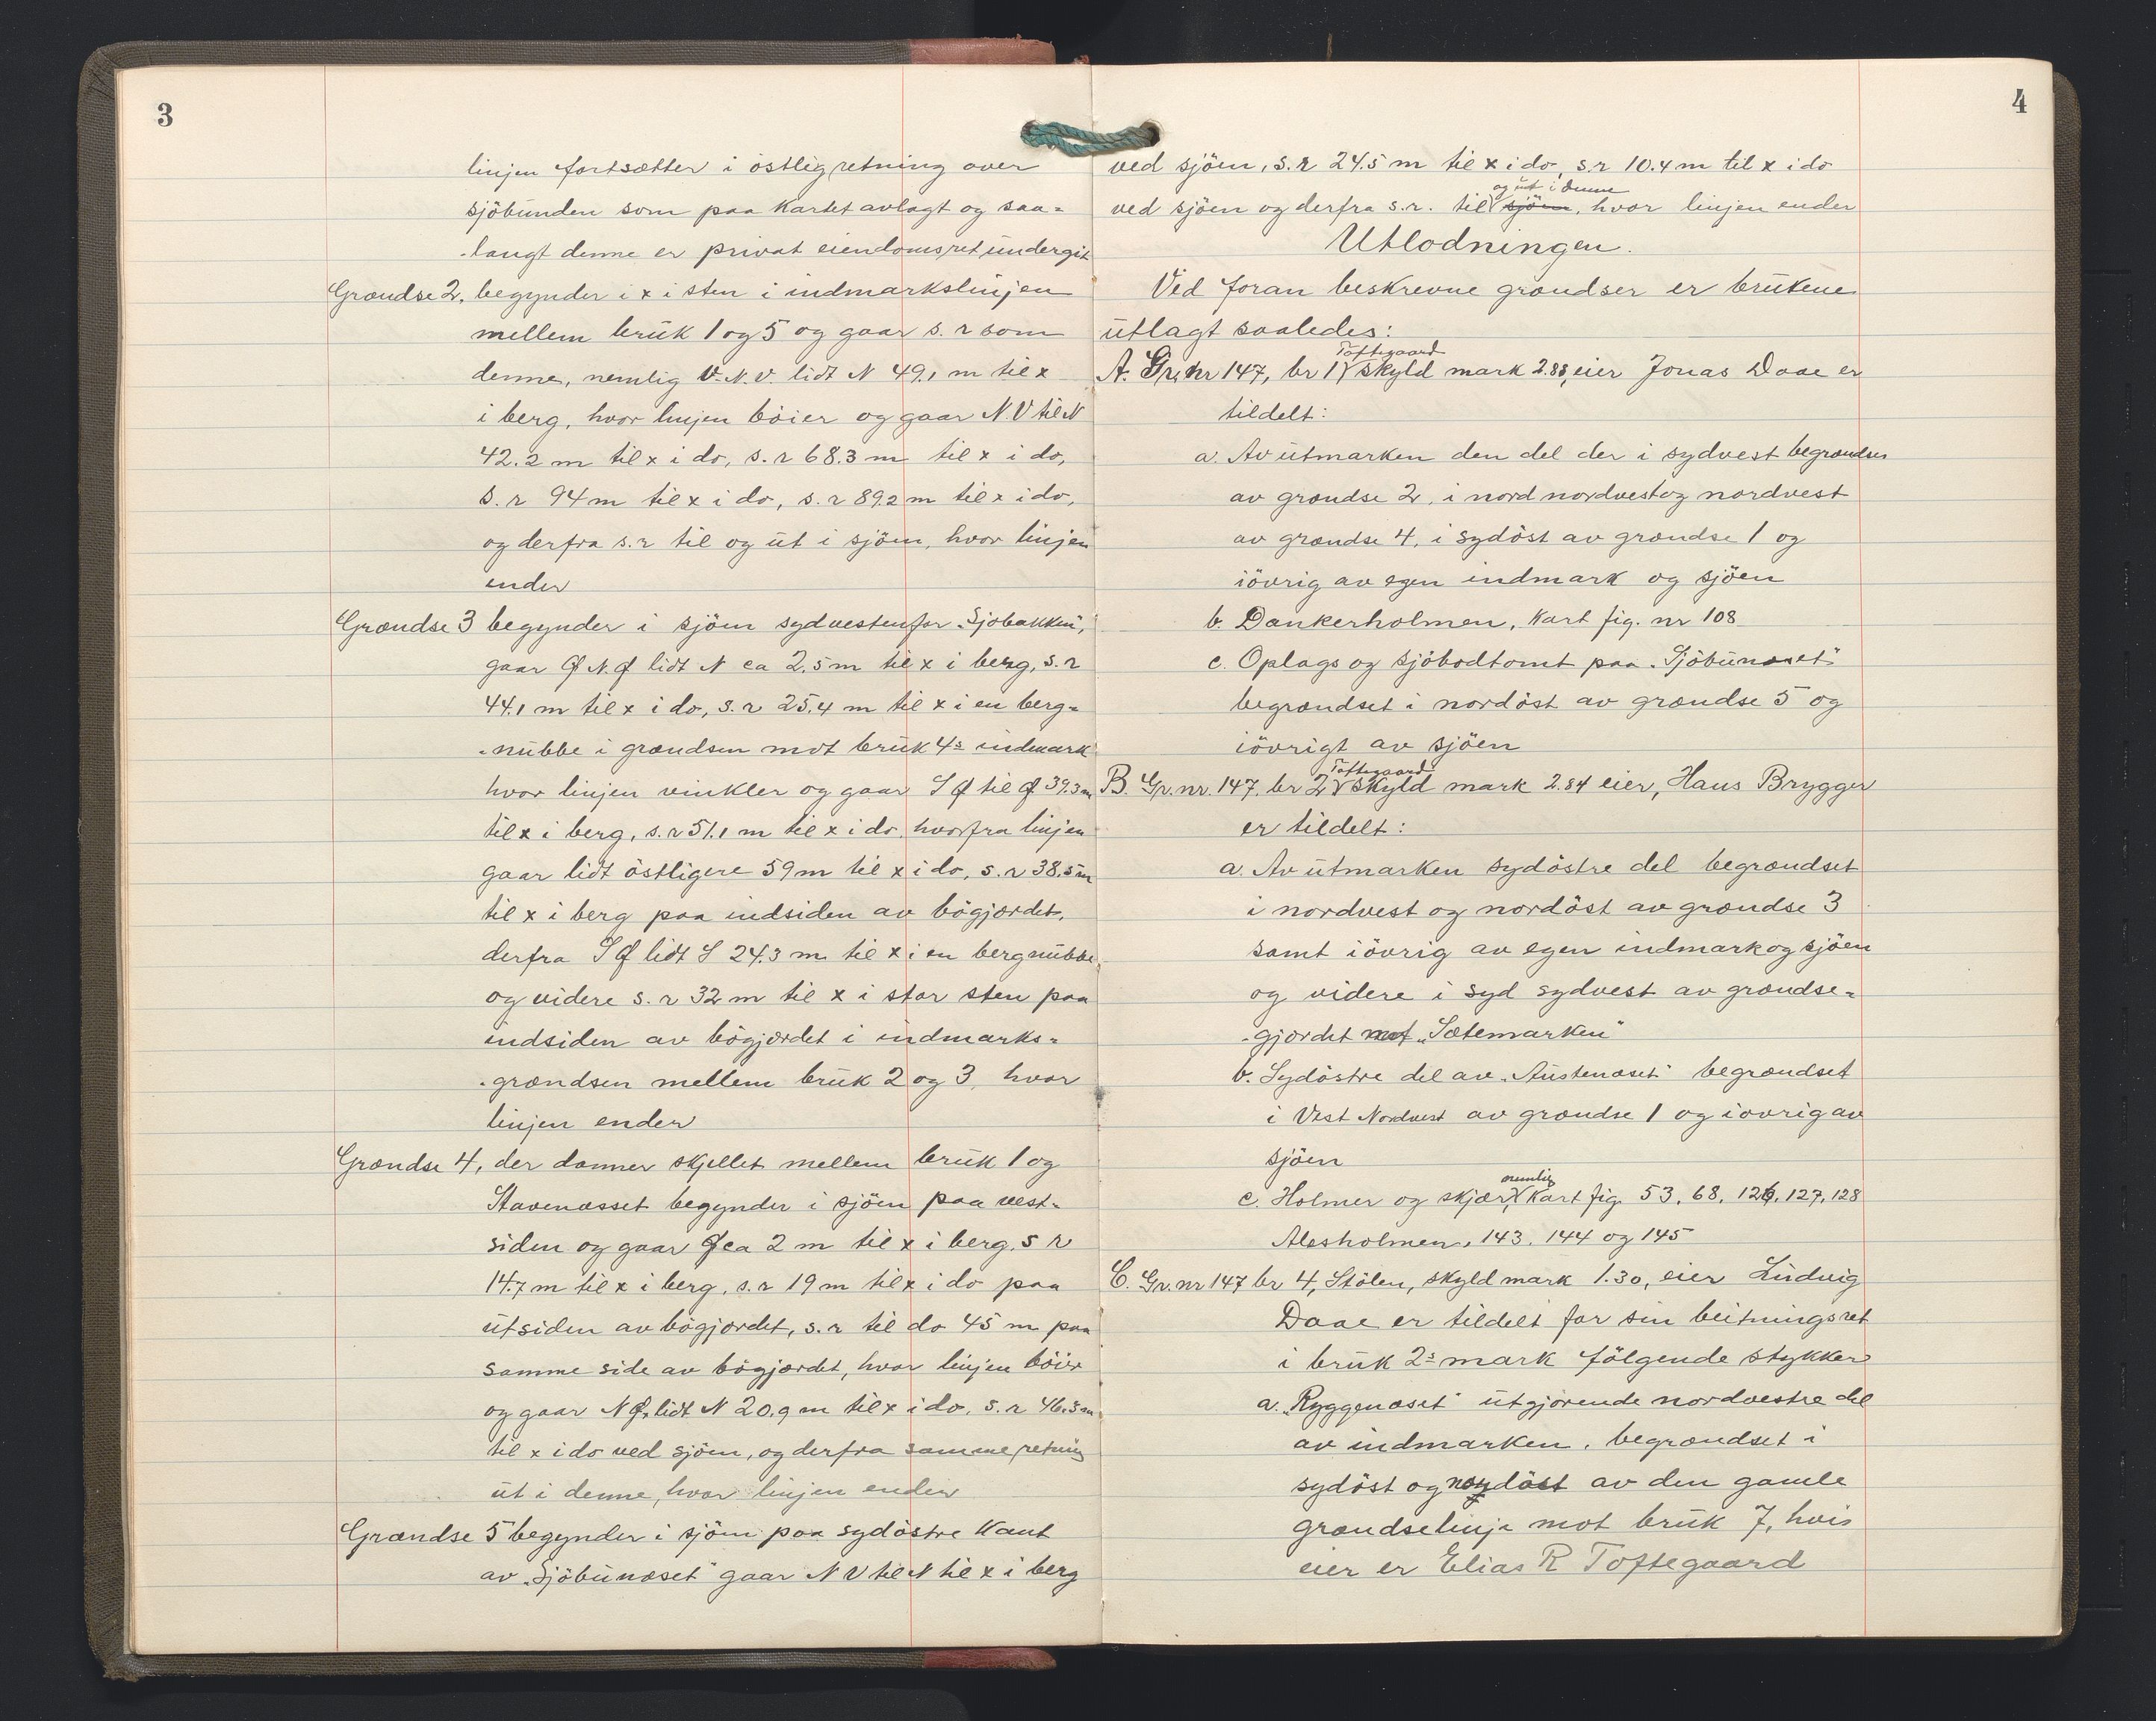 3
linjen fortsætter i östlig retning over
sjöbunden som paa kartet avlagt og saa-
-langt denne er privat eiendomsret undergit
Grændse 2, begynder i x i sten i indmarkslinjen
mellem bruk 1 og 5 og gaar s. r som
denne, nemlig V.N.V. lidt N 49,1 m til x
i berg, hvor linjen böier og gaar N.V til N
42.2 m til x i do, s. r 68.3 m til x i do,
s. r 94 m til x i do, s. r 89.2 m til x i do,
og derfra s. r til og ut i sjöen, hvor linjen
ender
Grændse 3 begynder i sjöen sydvestenfor „Sjøbakken",
gaar Ø N. Ø lidt N ca 2,5 m til x i berg, s. r
44.1 m til x i do, s. r 25.4 m til x i en berg-
-nubbe i grændsen mot bruk 4s indmark
hvor linjen vinkler og gaar S Ø til Ø 39.3 m
til x i berg, s. r 51.1 m til x i do. hvorfra linjen
gaar lidt östligere 59 m til x i do, s. r 38.5 m
til x i berg paa indsiden av bögjærdet,
derfra S Ø lidt S 24.3 m til x i en bergnubbe,
og videre s. r 32 m til x i stor sten paa
indsiden av bögjærdet i indmarks-
-grændsen mellem bruk 2 og 3, hvor
linjen ender
Grændse 4, der danner skjellet mellem bruk 1 og
Stavenæsset begynder i sjöen paa vest-
siden og gaar Ø ca 2 m til x i berg, s r
14.7 m til x i berg, s. r 19 m til x i do paa
utsiden av bögjærdet, s. r til do 45 m paa
samme side av bögjærdet, hvor linjen böier
og gaar N Ø, lidt N 20.9 m til x i do, s. r 46.5 m
til x i do ved sjöen, og derfra samme retning
ut i denne, hvor linjen ender
Grændse 5 begynder i sjöen paa sydöstre kant
av „Sjöbunæset" gaar N V til N til x i berg
4
ved sjöen, s. r 24.5 m til x i do, s. r 10.4 m til x i do
og ut i denne
ved sjöen og derfra s. r. til sjöen, hvor linjen ender
Utlodningen.
Ved foran beskrevne grændser er brukene
utlagt saaledes:
Toftegaard
A. Gr. nr 147, br 1, skyld mark 2.88, eier Jonas Daae er
tildelt:
a. Av utmarken den del der i sydvest begrændses
av grændse 2, i nord nordvest og nordvest
av grændse 4, i sydöst av grændse 1 og
iövrig av egen indmark og sjöen
b. Dankerholmen, Kart fig. nr 108
c. Oplags og sjöbodtomt paa „Sjöbunæset"
begrændset i nordöst av grændse 5 og
iövrigt av sjöen
Toftegaard
B. Gr. nr. 147, br 2, skyld mark 2.84 eier, Hans Brygger
er tildelt:
a. Av utmarken sydöstre del begrændset
i nordvest og nordöst av grændse 3
samt iövrig av egen indmark og sjöen
og videre i syd sydvest av grændse-
-gjærdet mot „Sætemarken"
b. Sydöstre del av „Austenæset" begrændset
i Vest Nordvest av grændse 1 og iövrig av
sjöen
nemlig
c. Holmer og skjær, Kart fig. 53, 68, 126, 127, 128
Alesholmen, 143, 144 og 145
C. Gr. nr 147 br 4, Stölen, skyld mark 1.30, eier Ludvig
Daae er tildelt for sin beitningsret
i bruk 2s mark fölgende stykker
a. „Ryggenæset" utgjørende nordvestre del
av indmarken, begrændset i
sydöst og nordöst av den gamle
grændselinje mot bruk 7, hvis
eier er Elias R Toftegaard